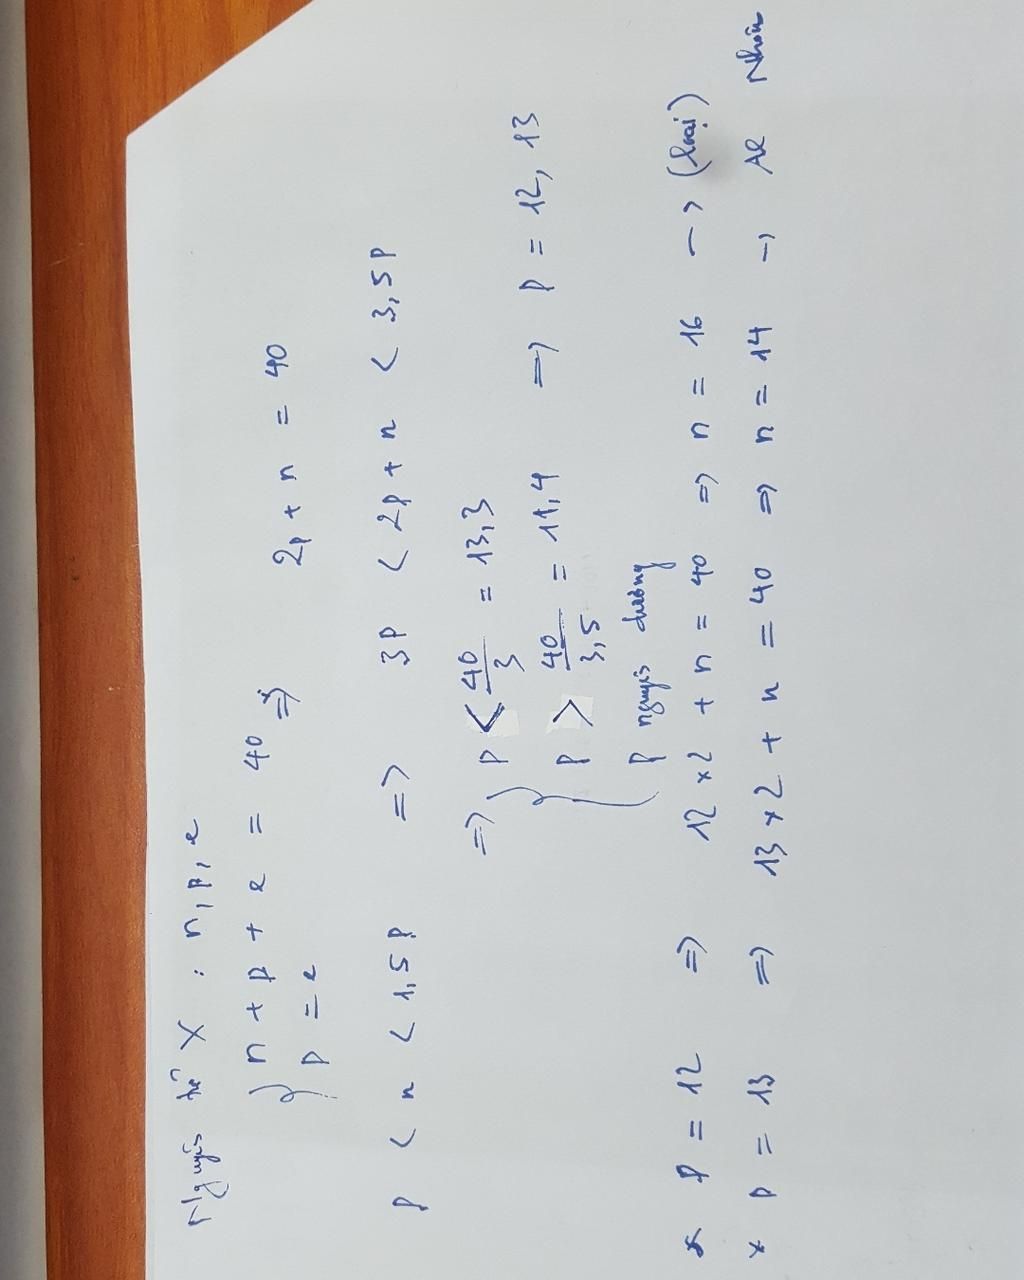 Nguyên tử X : n, p, e
n + p + e = 40 => 2p + n = 40
p = e
p < n < 1,5p => 3p < 2p + n < 3,5p
=> p < 40/3 = 13,3
p > 40/3,5 = 11,4 => p = 12, 13
p nguyên dương
* p = 12 => 12 x 2 + n = 40 => n = 16 -> (loại)
* p = 13 => 13 x 2 + n = 40 => n = 14 -> Al Nhôm